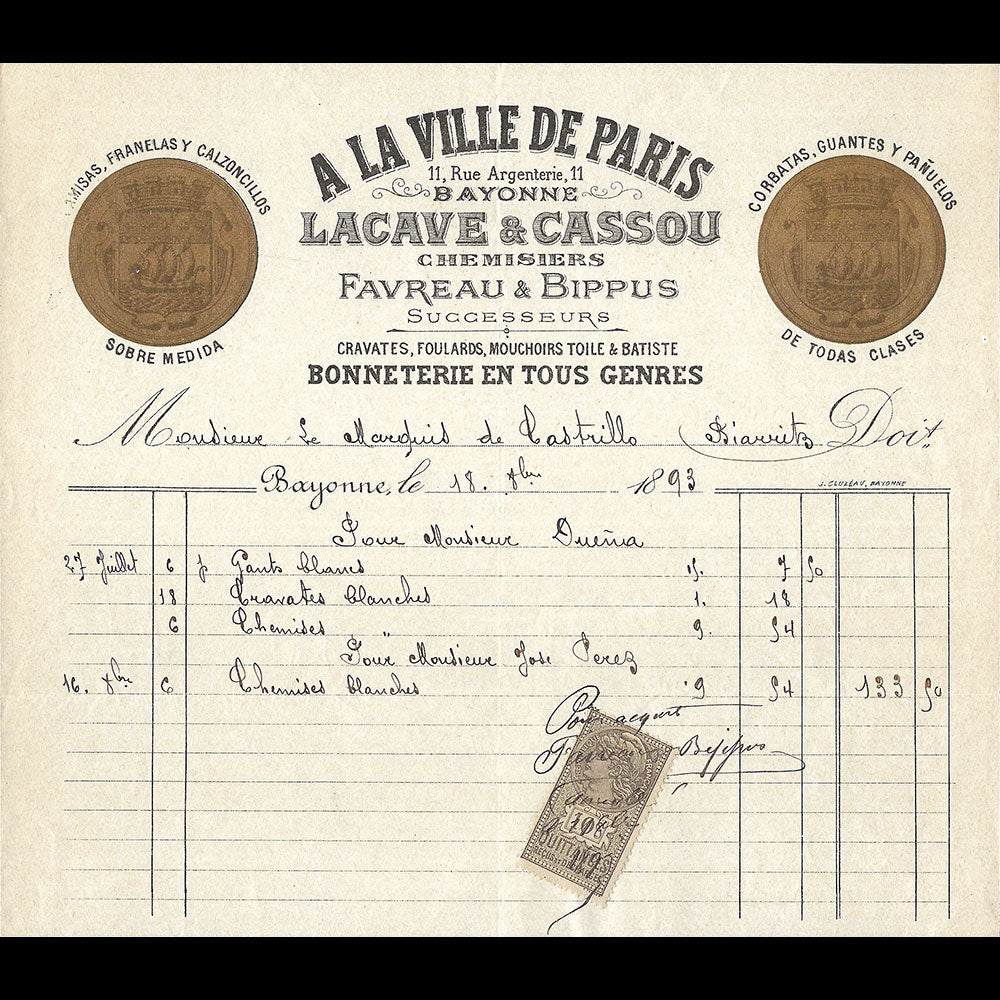 A LA VILLE DE PARIS
11, Rue Argenterie, 11
BAYONNE
LACAVE & CASSOU
CHEMISIERS
FAVREAU & BIPPUS
SUCCESSEURS
CRAVATES, FOULARDS, MOUCHOIRS TOILE & BATISTE
BONNETERIE EN TOUS GENRES
CAMISAS, FRANELAS Y CALZONCILLOS
SOBRE MEDIDA
CORBATAS, GUANTES Y PAÑUELOS
DE TODAS CLASES
Monsieur Le Marquis de Castrillo Biarritz Doit
Bayonne, le 18. 8bre 1893
J. CLUZEAU, BAYONNE
Pour Monsieur Dueña
27 Juillet 6 p Gants blancs 7 50
18 Cravates blanches 1. 18
6 Chemises " 9. 54
Pour Monsieur Jose Perez
16. 8bre 6 Chemises blanches 9 54 133 50
Pour acquit
Bippus
QUITTANCES